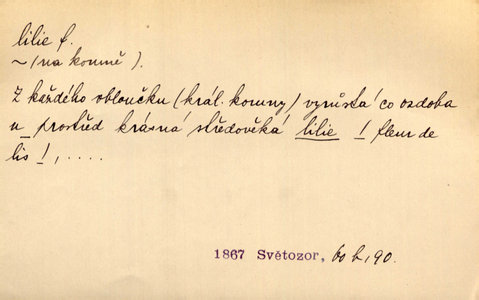 lilie f.
~ (na koruně).
Z každého obloučku (král. koruny) vyrůstá co ozdoba
u prostřed krásná středověká lilie ! fleur de
lis !, ....
1867 Světozor, 90.